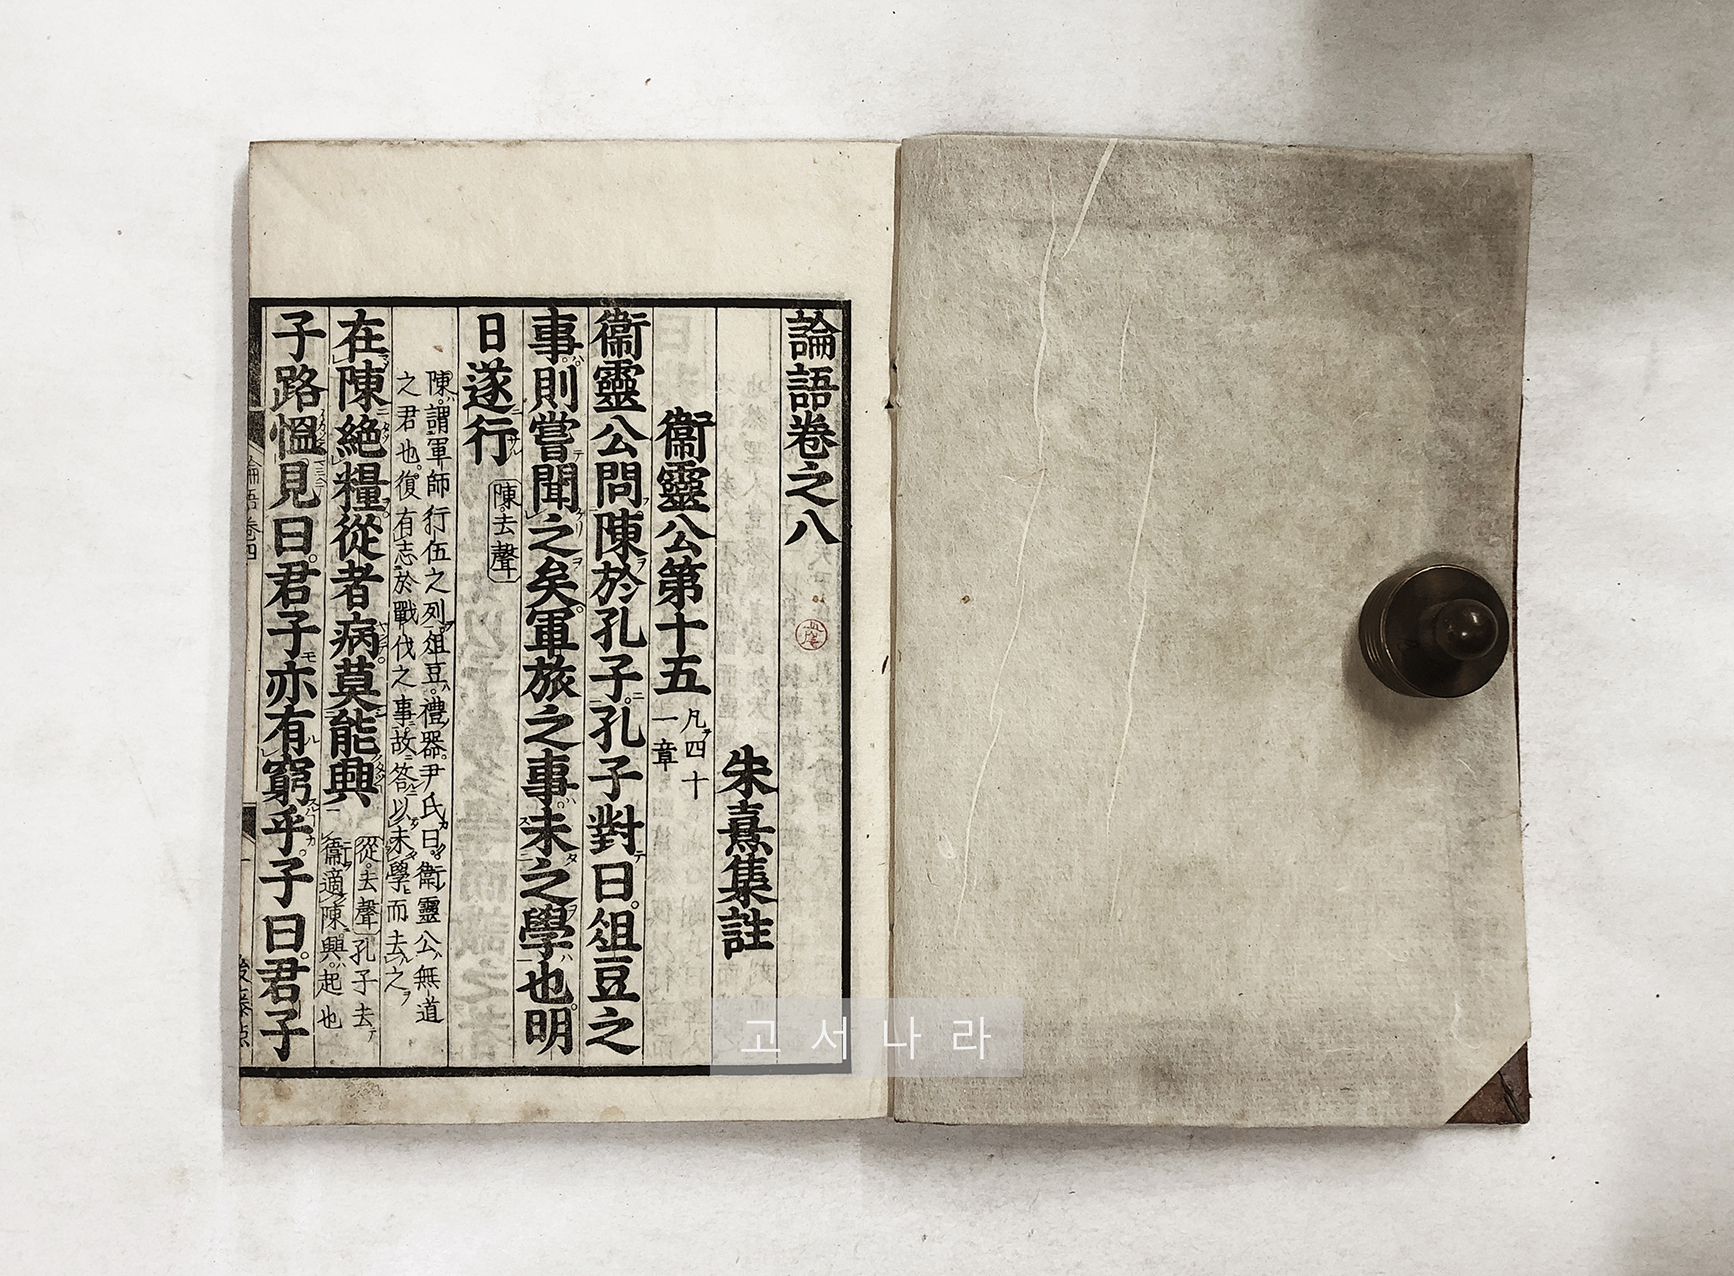 論語卷之八
朱熹集註
衞靈公第十五 凡四十
一章
衞靈公問陳於孔子。孔子對曰。俎豆之
事。則嘗聞之矣。軍旅之事。未之學也。明
日遂行
陳去聲
陳。謂軍師行伍之列。俎豆。禮器。尹氏曰。衞靈公無道
之君也。復有志於戰伐之事。故答以未學而去之
在陳絕糧。從者病。莫能興
從。去聲 孔子去
衞適陳。興。起也
子路慍見曰。君子亦有窮乎。子曰。君子
論語 卷四
後藤点
고서나라